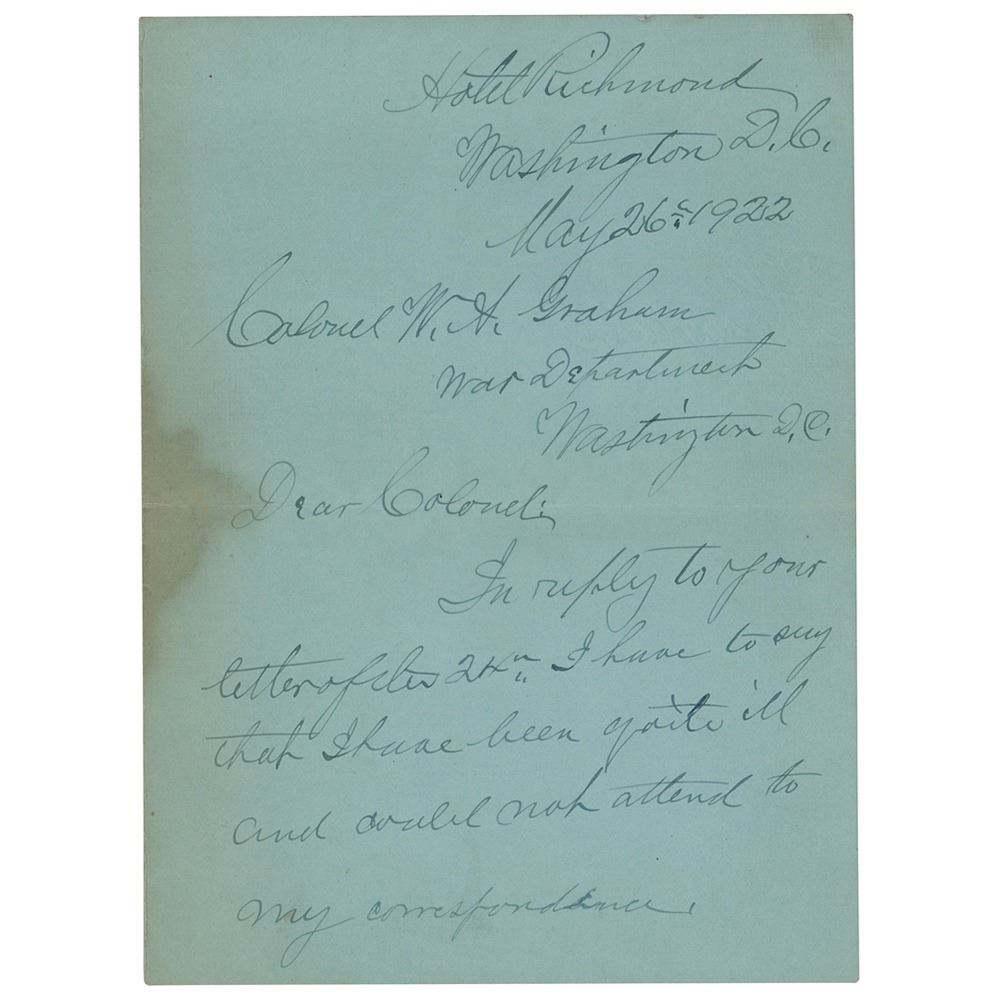 Hotel Richmond
Washington D.C.
May 26th 1922
Colonel W. H. Graham
War Department
Washington D.C.
Dear Colonel:
In reply to your
letter of the 24th I have to say
that I have been quite ill
and could not attend to
my correspondence.